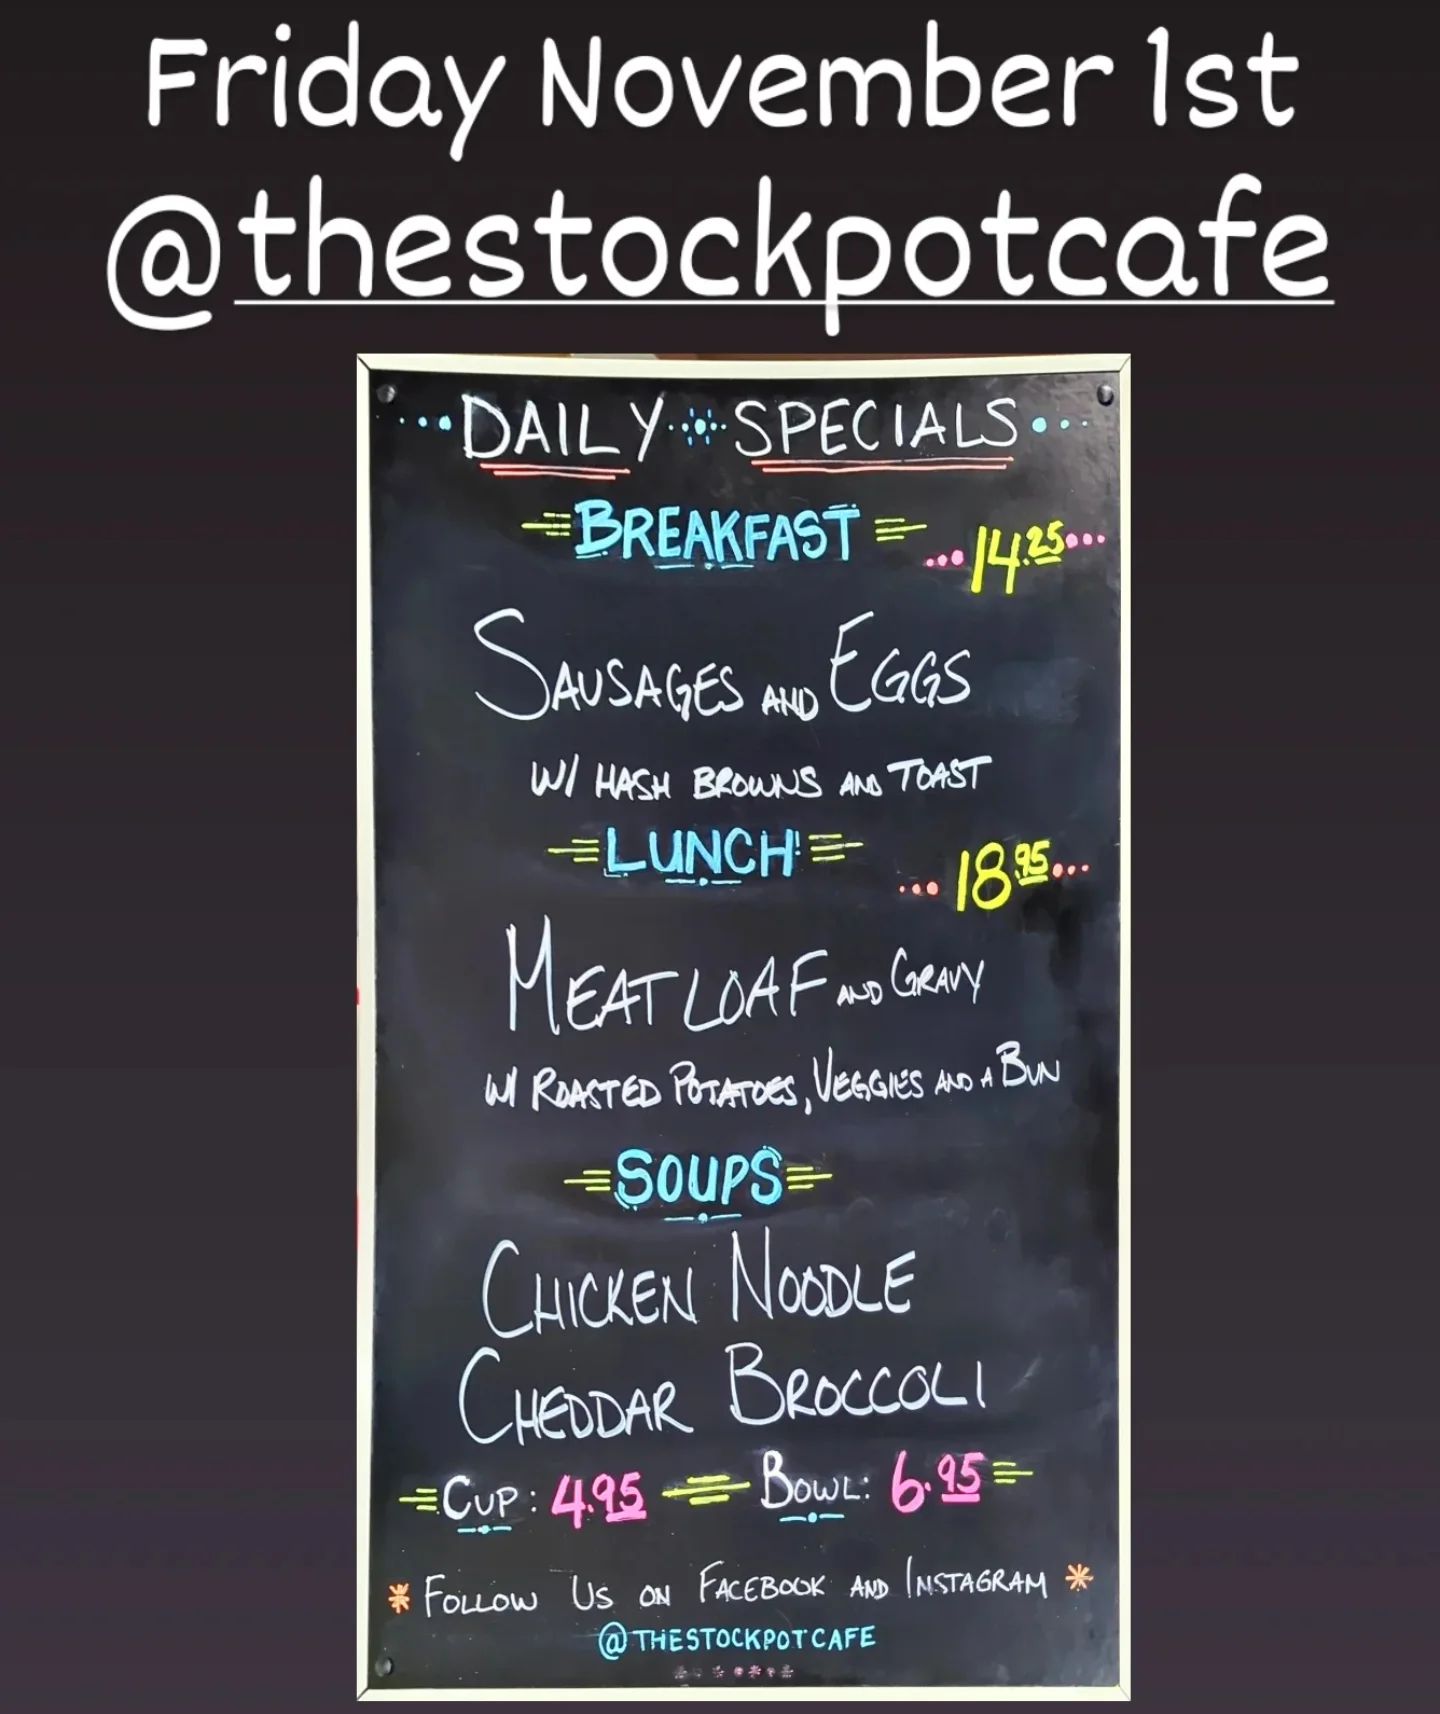 Friday November 1st
@thestockpotcafe
DAILY SPECIALS
BREAKFAST 14.25
SAUSAGES AND EGGS
W/ HASH BROWNS AND TOAST
LUNCH 18.95
MEATLOAF AND GRAVY
W/ ROASTED POTATOES, VEGGIES AND A BUN
SOUPS
CHICKEN NOODLE
CHEDDAR BROCCOLI
CUP: 4.95 BOWL: 6.95
* FOLLOW US ON FACEBOOK AND INSTAGRAM *
@THESTOCKPOTCAFE